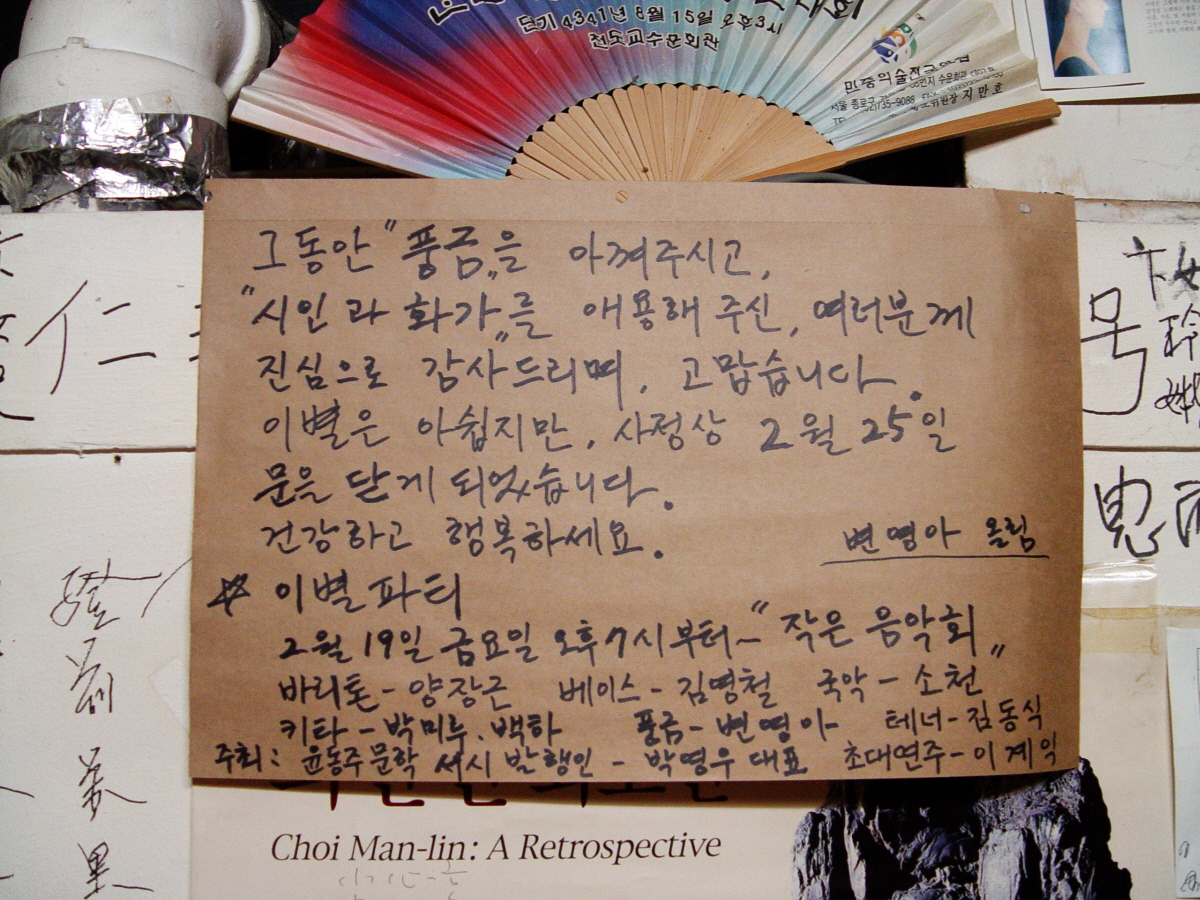 단기 4341년 8월 15일 오후3시
천도교수운회관
민중의술
서울 종로구
735-9088
지만호
그동안 "풍금"을 아껴주시고,
"시인과 화가"를 애용해 주신, 여러분께
진심으로 감사드리며, 고맙습니다.
이별은 아쉽지만, 사정상 2월 25일
문을 닫게 되었습니다.
건강하고 행복하세요.
변영아 올림
이별파티
2월 19일 금요일 오후7시부터~ "작은 음악회"
바리톤-양장근 베이스-김명철 국악-소천
키타-박미루.백하 풍금-변영아 테너-김동식
주최: 윤동주문학 서시 발행인 - 박영우 대표 초대연주-이계익
仁
号
Choi Man-lin: A Retrospective